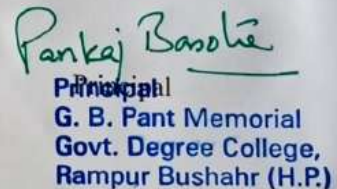 Pankaj Basotia
Principal
Principal
G. B. Pant Memorial
Govt. Degree College,
Rampur Bushahr (H.P.)